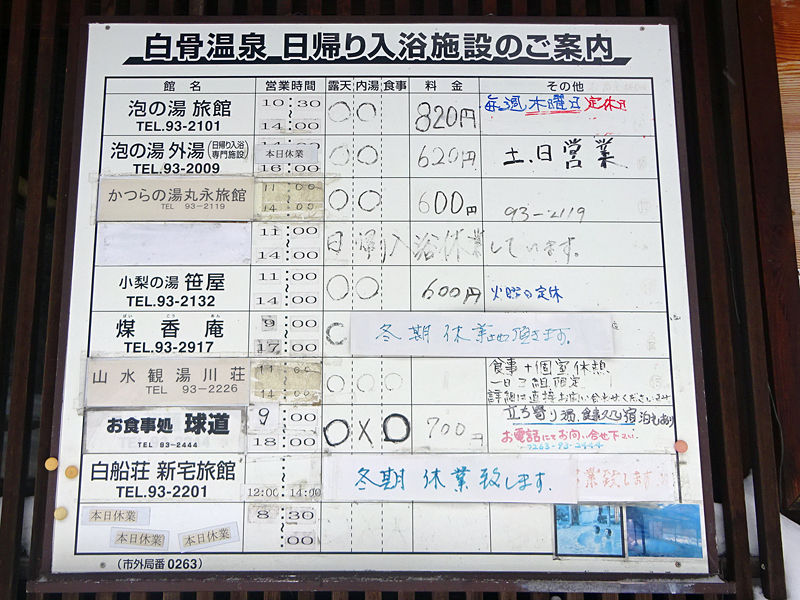 白骨温泉 日帰り入浴施設のご案内
館名 営業時間 露天 内湯 食事 料金 その他
泡の湯 旅館 10:30 〜 14:00 ○ ○ 820円 毎週木曜日定休日
TEL.93-2101
泡の湯 外湯 (日帰り入浴専門施設) 本日休業 16:00 ○ ○ 620円 土、日営業
TEL.93-2009
かつらの湯丸永旅館 11:00 〜 14:00 ○ ○ 600円 93-2119
TEL 93-2119
11:00 〜 14:00 日帰入浴休業しています。
小梨の湯 笹屋 11:00 〜 14:00 ○ ○ 600円 火曜日定休
TEL.93-2132
ばい こう あん
煤香庵 9:00 〜 17:00 ○ 冬期休業
TEL.93-2917
山水観湯川荘 11:00 〜 14:00 ○ ○ ○ 食事+個室休憩
TEL 93-2226 一日三組限定
お食事処 球道 9:00 〜 18:00 ○ × ○ 700円 立ち寄り湯、
TEL 93-2444 お電話にてお問い合せ下さい。
0263-93-2444
白船荘 新宅旅館 12:00 〜 14:00 冬期 休業致します。 業致します
TEL.93-2201
本日休業 8:30 〜 :00
本日休業 本日休業
(市外局番0263)